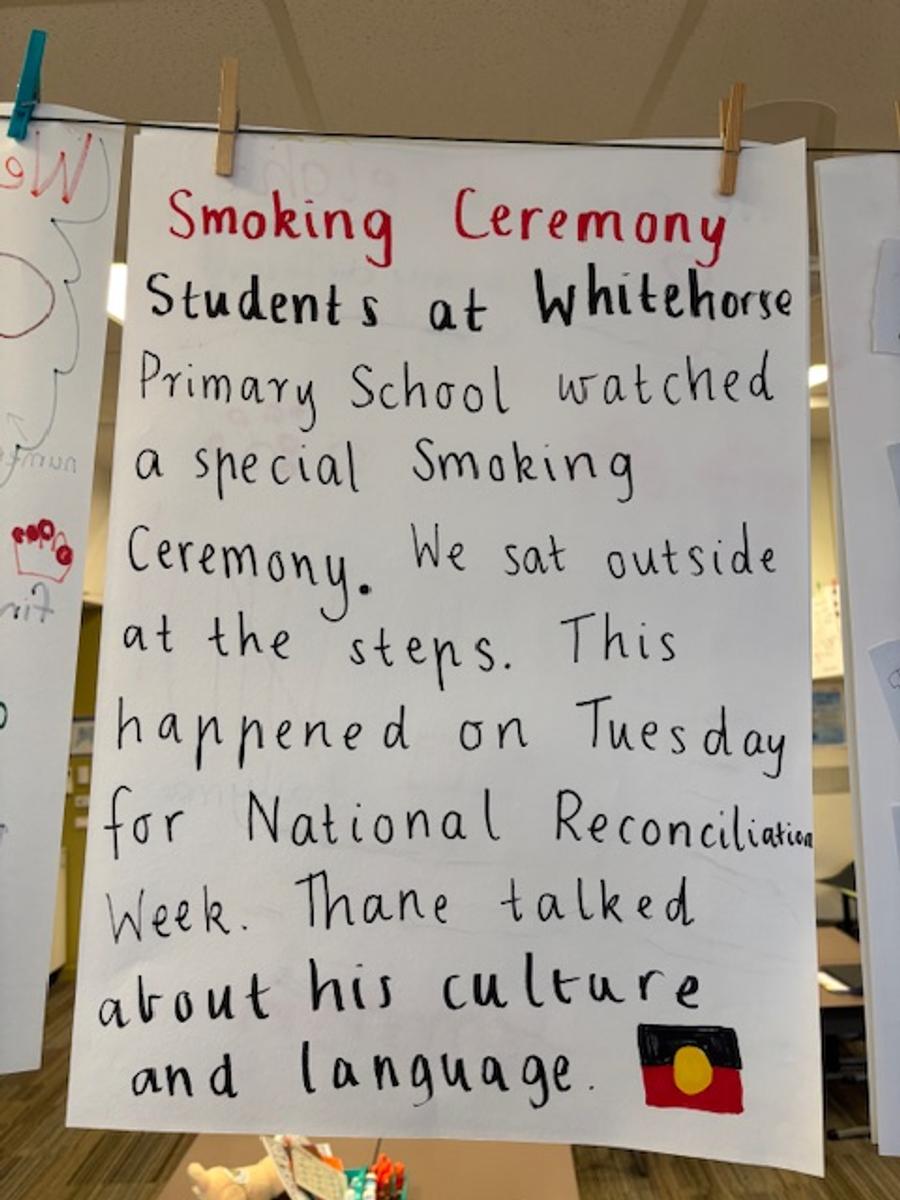 Smoking Ceremony
Students at Whitehorse
Primary School watched
a special Smoking
Ceremony. We sat outside
at the steps. This
happened on Tuesday
for National Reconciliation
Week. Thane talked
about his culture
and language.